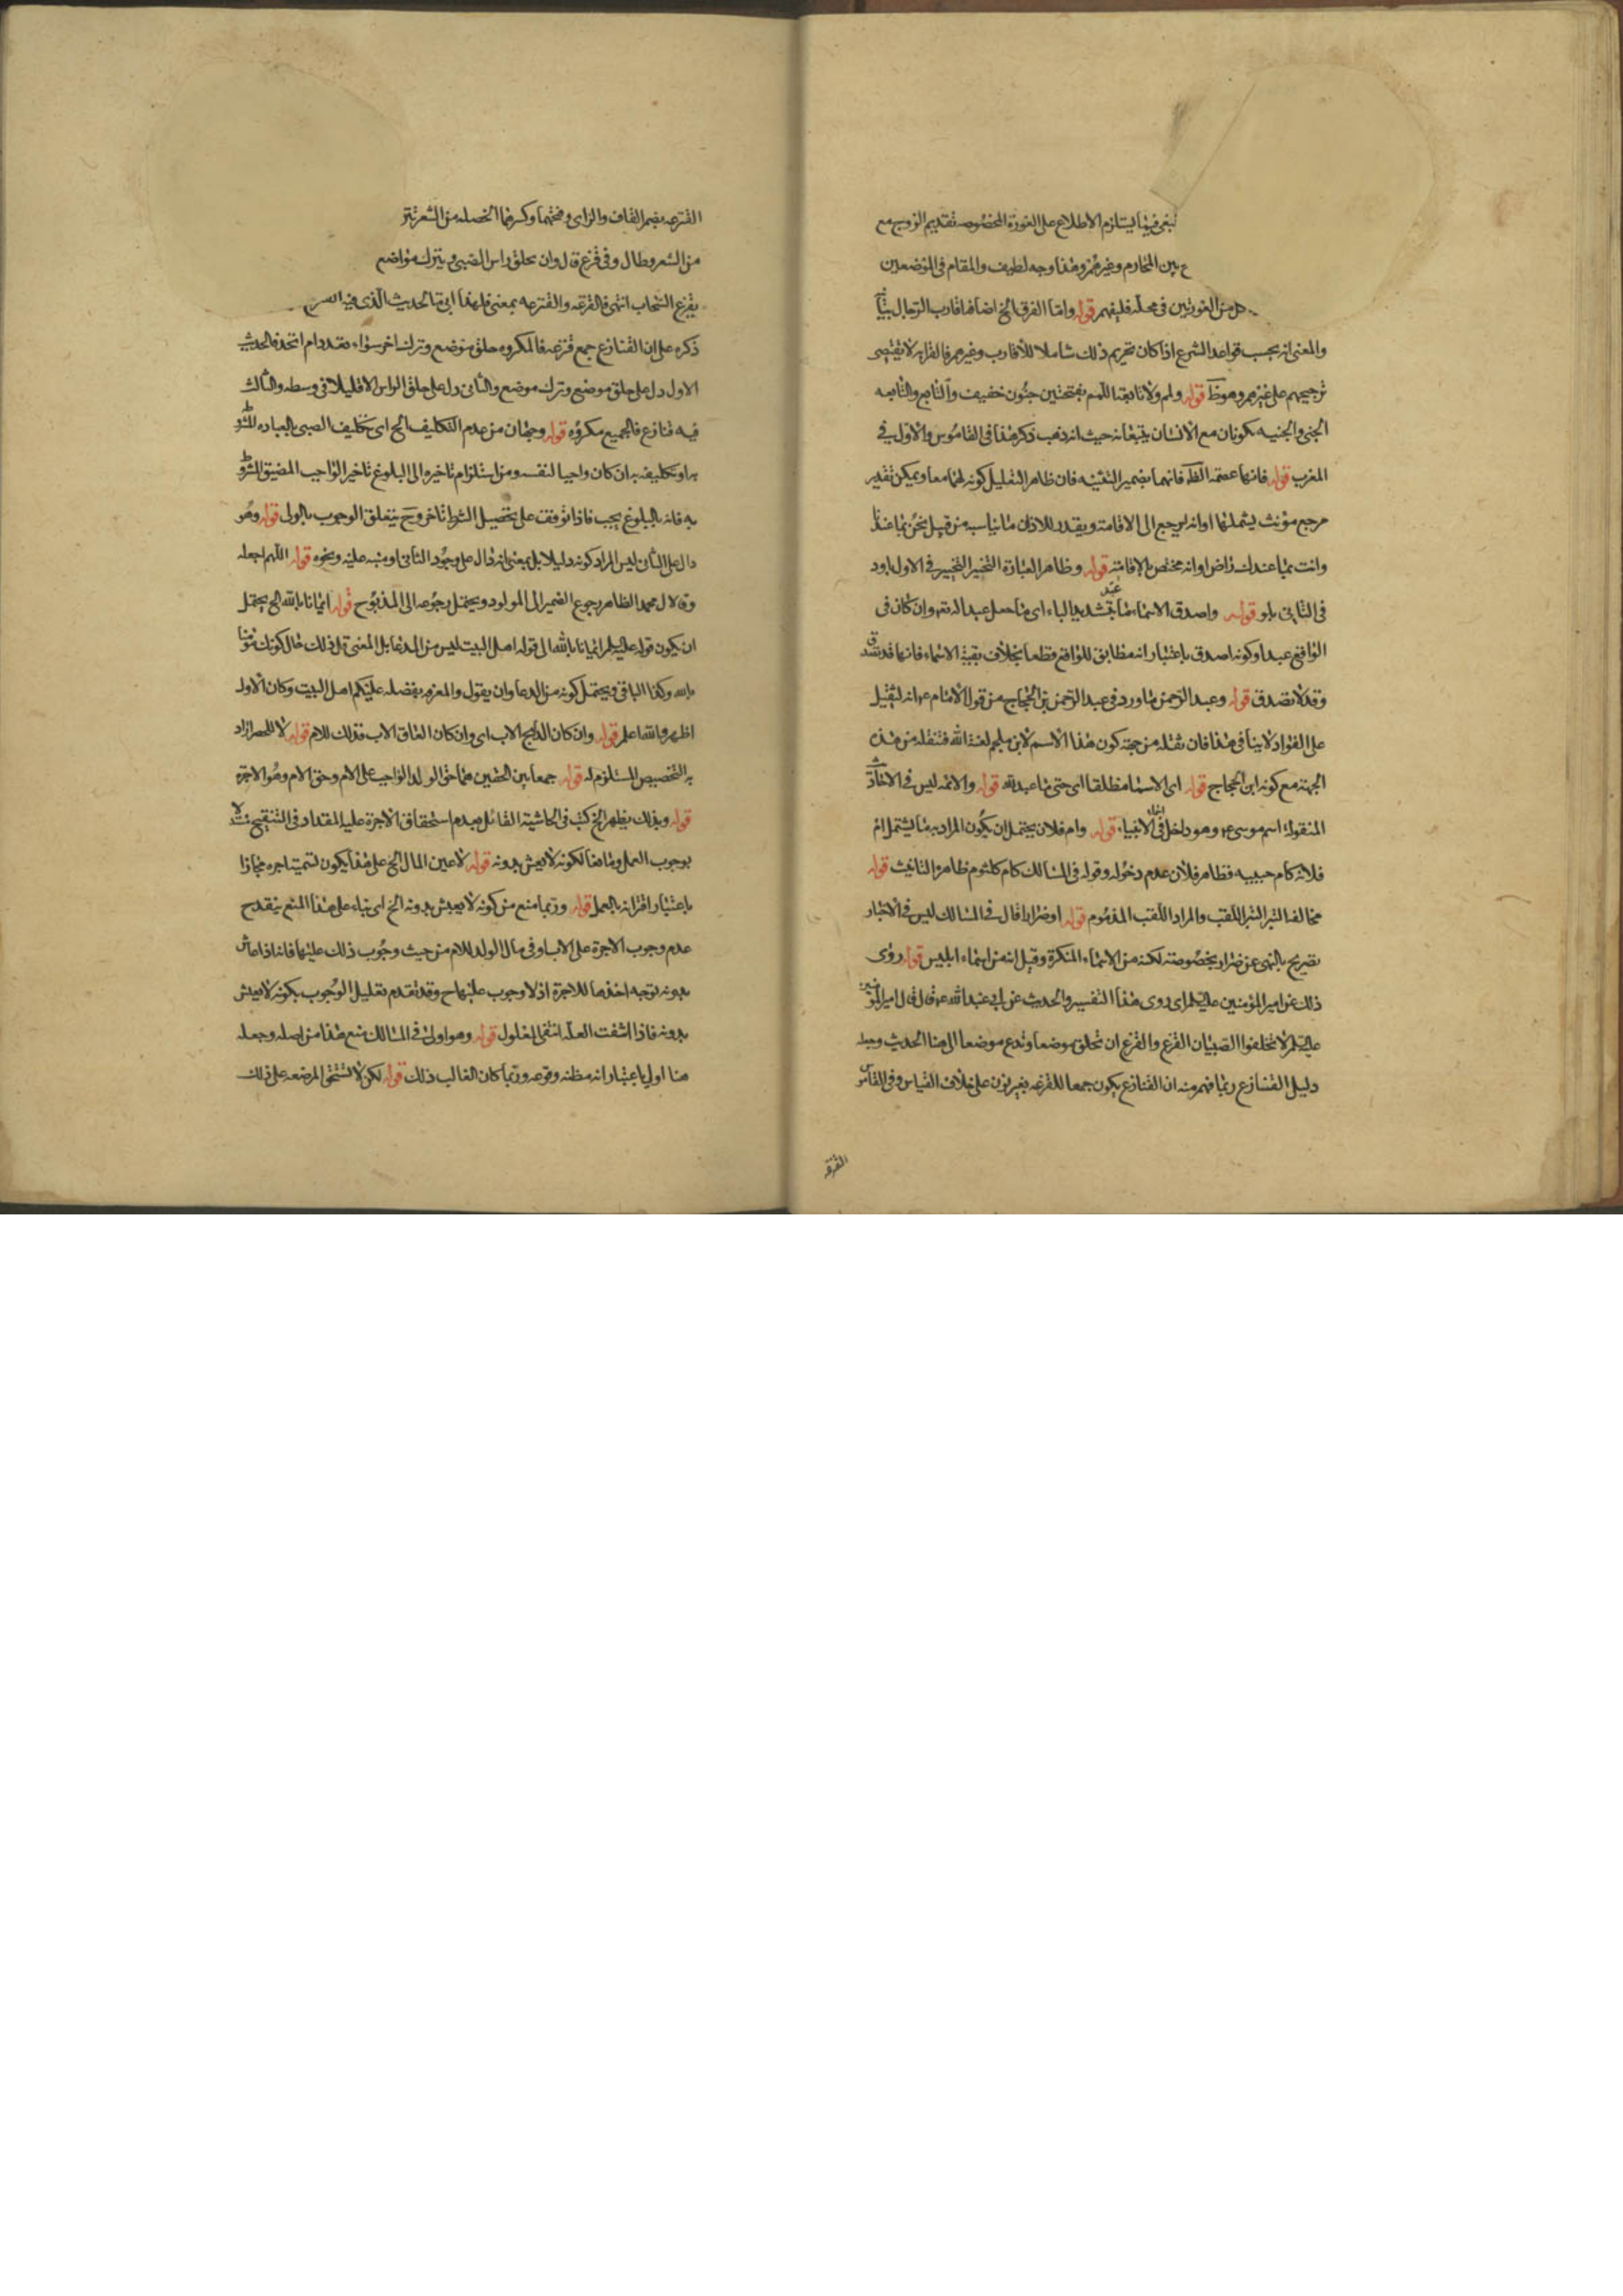 ينبغي فيما يستلزم الاطلاع على العورة المخصوصة تقديم الزوج مع
بين المحارم وغيرهم وهذا وجه لطيف والمقام في الموضعين
كل من العورتين في محله فليفهم قوله واما الفرق الخ اضافة اقارب الرجال
والمعنى انه بحسب قواعد الشرع اذا كان تحريم ذلك شاملا للاقارب وغيرهم فالقرابة لا تقتضى
ترجيحهم على غيرهم وهو ظ قوله ولمم ولا تابعة اللمم بفتحتين جنون خفيف والتابع والتابعه
الجنى والجنيه يكونان مع الانسان يتبعانه حيث ذهب ذكر هذا في القاموس والاول في
المغرب قوله فانها عصمة الظ فانهما بضمير التثنيه فان ظاهر التعليل كونه لهما معا ويمكن تقدير
مرجع مؤنث يشملهما او انه يرجع الى الاقامة ويقدر للاذان ما يناسبه من قبيل نحن بما عندنا
وانت بما عندك راض او انه مختص بالاقامة قوله وظاهر العبارة التخيير التخيير في الاول باو
في الثاني باو قوله واصدق الاسماء ما عبد بتشديد الباء اى ما جعل عبدا له تعه وان كان في
الواقع عبدا وكونه اصدق باعتبار انه مطابق للواقع قطعا بخلاف بقية الاسماء فانها قد تصدق
وقد لا تصدق قوله وعبد الرحمن ما ورد في عبد الرحمن بن الحجاج من قول الامام ع انه لثقيل
على الفؤاد لا ينافي هذا فان ثقله من جهة كون هذا الاسم لابن ملجم لعنه الله فثقله من هذه
الجهة مع كونه ابن الحجاج قوله اى الاسماء مطلقا اى حتى ما عبد لله قوله والائمه ليس في الاخبار
المنقولة اسم موسى ع وهو داخل في الانبياء قوله وام فلان يحتمل ان يكون المراد به ما يشتمل ام
فلانه كام حبيبه فظاهر فلان عدم دخوله وقوله في المسالك كام كلثوم ظاهره التانيث قوله
مخالفا النبز النبز اللقب والمراد اللقب المذموم قوله او ضرارا قال في المسالك ليس في الاخبار
تصريح بالنهى عن ضرار بخصوصه لكنه من الاسماء المنكرة وقيل انه من اسماء ابليس قوله روى
ذلك عن امير المؤمنين عليه السلم اى روى هذا التفسير والحديث عن ابي عبد الله ع قال قال امير المؤمنين
عليه السلم لا تحلقوا الصبيان القزع والقزع ان تحلق موضعا وتدع موضعا الى هنا الحديث وجعله
دليل القنازع ربما فهم منه ان القنازع يكون جمعا للقزعه بغير نون على خلاف القياس وفي القاموس
القزعه بضم القاف والزاى وفتحهما وكسرهما الخصله من الشعر تترك
من الشعر وطال وفي قزع قال وان يحلق راس الصبى ويترك مواضع
بقزع السحاب انتهى فالقزعه والقنزعه بمعنى فلهذا اتى بالحديث الذى فيه
ذكره على ان القنازع جمع قنزعه فالمكروه حلق موضع وترك اخر سواء تعدد ام اتحد فالحديث
الاول دل على حلق موضع وترك موضع والثاني دل على حلق الراس الا قليلا في وسطه والثالث
فيه قنازع فالجميع مكروه قوله وجهان من عدم التكليف الخ اى تكليف الصبى بالعباده المشروط
بها وتكليفه به ان كان واجبا لنفسه ومن استلزام تاخيره الى البلوغ تاخير الواجب المضيق المشروط
به فانه بالبلوغ يجب فاذا توقف على تحصيل الشرط تاخر وح يتعلق الوجوب بالولى قوله وهو
دال على الثاني ليس المراد كونه دليلا بل بمعنى انه دال على وجود الثاني او منبه عليه ونحوه قوله اللهم اجعله
وقاء لال محمد الظاهر رجوع الضمير الى المولود ويحتمل رجوعه الى المذبوح قوله ايمانا بالله الخ يحتمل
ان يكون قوله عليه السلم ايمانا بالله الى قوله اهل البيت ليس من الدعاء بل المعنى قل ذلك حال كونك مؤمنا
بالله وكذا الباقي ويحتمل كونه من الدعا وان يقول والمعرفه بفضله عليكم اهل البيت وكان الاول
اظهر والله اعلم قوله وان كان الذابح الاب اى وان كان العاق الاب فذلك للام قوله لا للحصر ازاد
به التخصيص المستلزم له قوله جمعا بين الحقين هما حق الولد الواجب على الام وحق الام وهو الاجرة
قوله وبذلك يظهر الخ كتب في الحاشية القائل بعدم استحقاق الاجرة عليه المقداد في التنقيح
بوجوب العمل وما هنا لكونه لا يعيش بدونه قوله لا عين المال الخ على هذا يكون تسميته اجره مجازا
باعتبار اقترانه بالعمل قوله وربما منع من كونه لا يعيش بدونه الخ اى بناء على هذا المنع ينقدح
عدم وجوب الاجرة على الاب او في مال الولد للام من حيث وجوب ذلك عليها فانه اذا عاش
بدونه توجه اخذها للاجرة اذ لا وجوب عليها ح وقد تقدم تعليل الوجوب بكونه لا يعيش
بدونه فاذا انتفت العلة انتفى المعلول قوله وهو اولى في المسالك منع هذا من اصله وجعله
هنا اولى باعتبار انه مظنه وقوعه وربما كان الغالب ذلك قوله لكن لا تستحق المرضعه على ذلك
القزعه